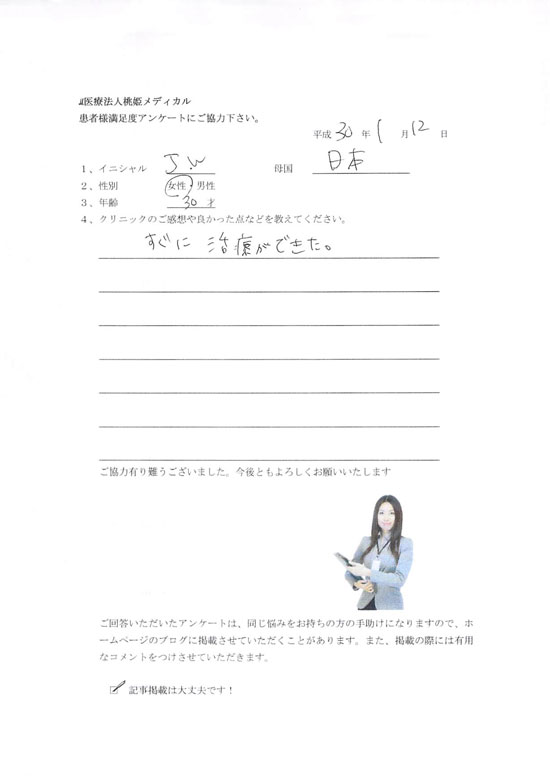 医療法人桃姫メディカル
患者様満足度アンケートにご協力下さい。
平成 30 年 1 月 12 日
1、イニシャル J.W 母国 日本
2、性別 女性・男性
3、年齢 30 才
4、クリニックのご感想や良かった点などを教えてください。
すぐに 治療ができた。
ご協力有り難うございました。今後ともよろしくお願いいたします
ご回答いただいたアンケートは、同じ悩みをお持ちの方の手助けになりますので、ホ
ームページのブログに掲載させていただくことがあります。また、掲載の際には有用
なコメントをつけさせていただきます。
記事掲載は大丈夫です！